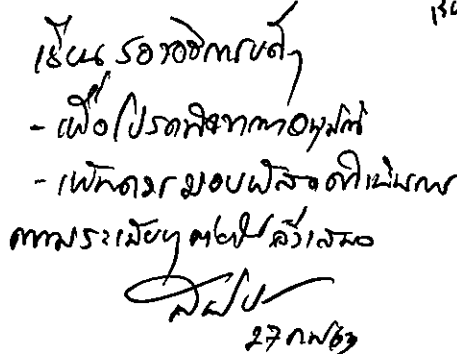 เรียน
เรียน รองอธิการบดีฯ
- เพื่อโปรดพิจารณาอนุมัติ
- เห็นควรมอบพัสดุดำเนินการ
ตามระเบียบฯ ต่อไป
27 กพ 63